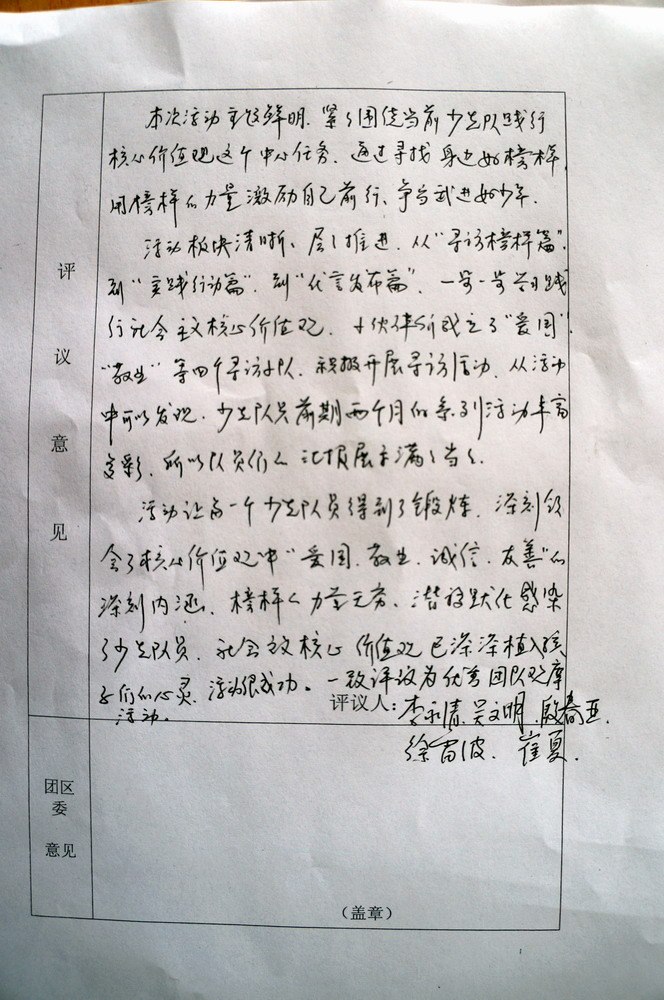 评议意见
本次活动主题鲜明,紧紧围绕当前少先队践行
核心价值观这个中心任务,通过寻找身边好榜样,
用榜样的力量激励自己前行、争当武进好少年.
活动板块清晰、层层推进,从“寻访榜样篇”
到“实践行动篇”,到“代言发布篇”,一步一步学习践
行社会主义核心价值观,小伙伴们成立了“爱国”
“敬业”等四个寻访小队,积极开展寻访活动,从活动
中可以发现,少先队员前期两个月的系列活动丰富
多彩,所以队员们的汇报展示满满当当.
活动让每一个少先队员得到了锻炼,深刻领
会了核心价值观中“爱国、敬业、诚信、友善”的
深刻内涵,榜样的力量无穷、潜移默化感染
了少先队员,社会主义核心价值观已深深植入孩
子们的心灵,活动很成功。一致评议为优秀团队观摩
活动.
评议人:李 清.吴文明.殷春亚.
徐 波. 崔夏.
团区委意见
(盖章)